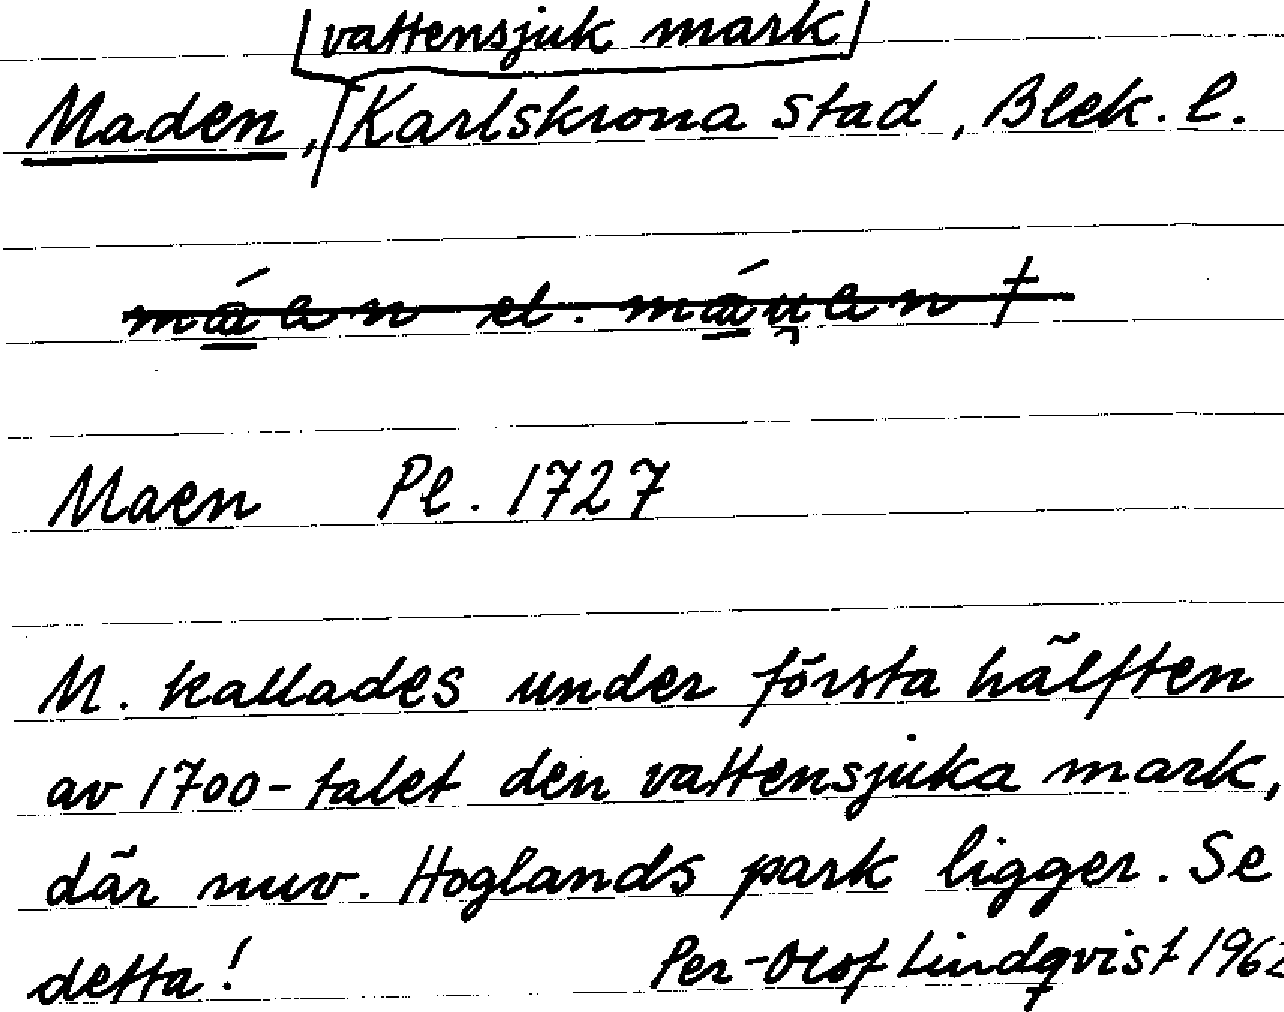 vattensjuk mark
Maden, Karlskrona stad, Blek. l.
Maen Pl. 1727
M. kallades under första hälften
av 1700-talet den vattensjuka mark,
där nuv. Hoglands park ligger. Se
detta! Per-Olof Lindqvist